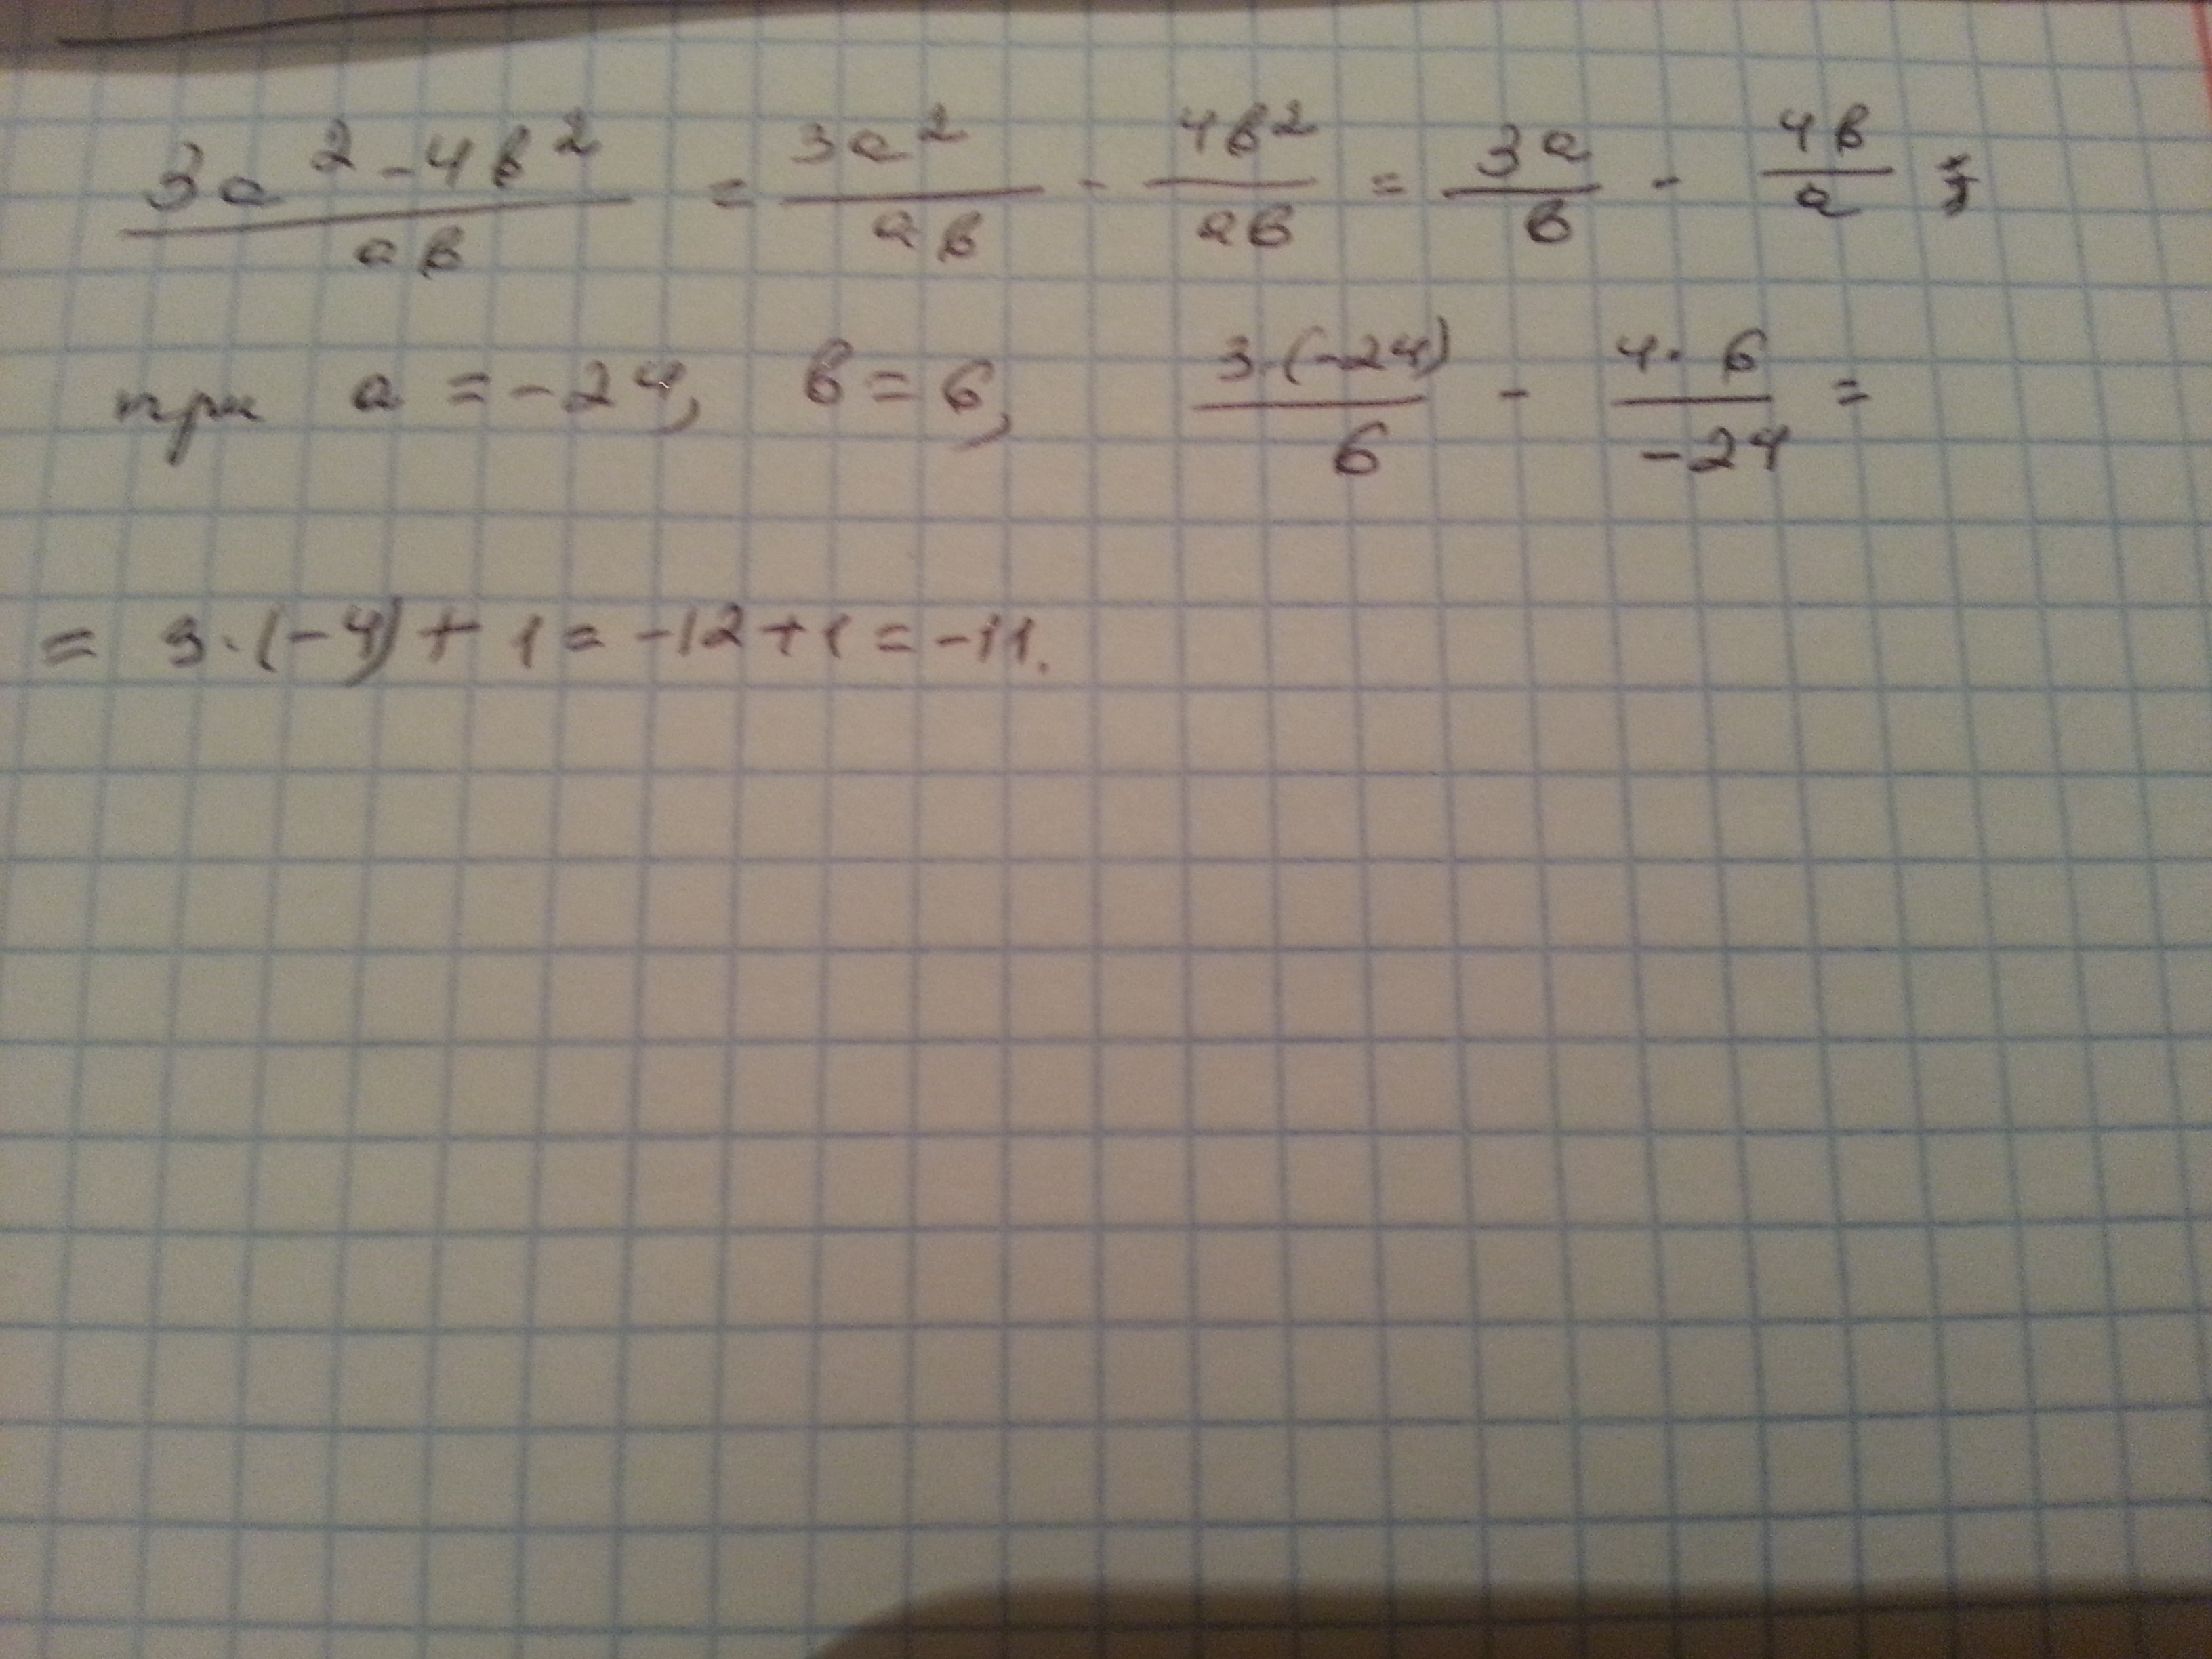 (3a² - 4в²)/(aв) = 3a²/(aв) - 4в²/(aв) = 3a/в - 4в/a ;
при a = -24, в = 6, (3·(-24))/6 - (4·6)/(-24) =
= 3·(-4) + 1 = -12 + 1 = -11.